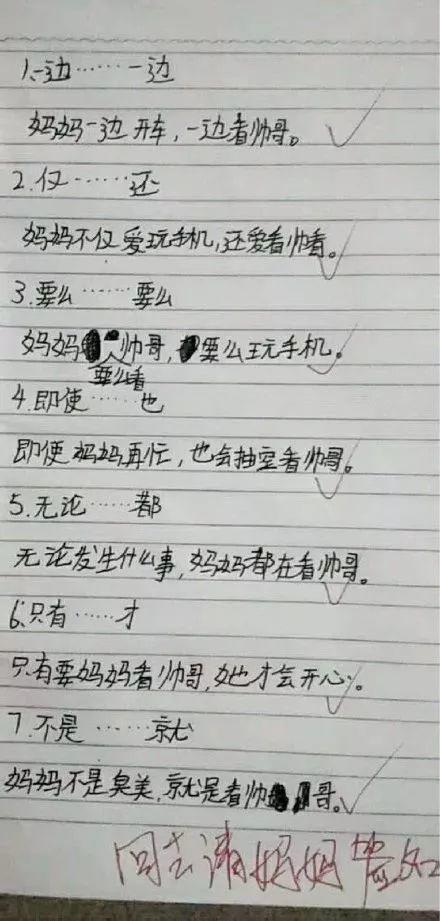 1.一边……一边
妈妈一边开车，一边看帅哥。
2.仅……还
妈妈不仅爱玩手机，还爱看帅看。
3.要么……要么
妈妈要么看帅哥，要么玩手机。
4.即使……也
即使妈妈再忙，也会抽空看帅哥。
5.无论……都
无论发生什么事，妈妈都在看帅哥。
6.只有……才
只有要妈妈看帅哥，她才会开心。
7.不是……就
妈妈不是臭美，就是看帅哥。
回去请妈妈签如